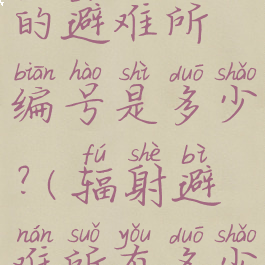 的避难所
biān hào shì duō shǎo
编号是多少
fú shè bì
?(辐射避
nán suǒ yǒu duō shǎo
难所有多少